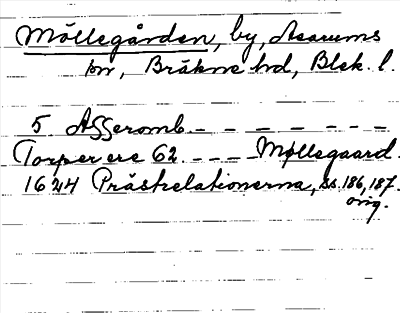 Möllegården, by, Asarums
sn, Bräkne hd, Blek. l.
5 Asseromb. – – – – – –
Torper ere 62. – – – – Møllegaard.
1624 Prästrelationerna, ss. 186, 187.
orig.